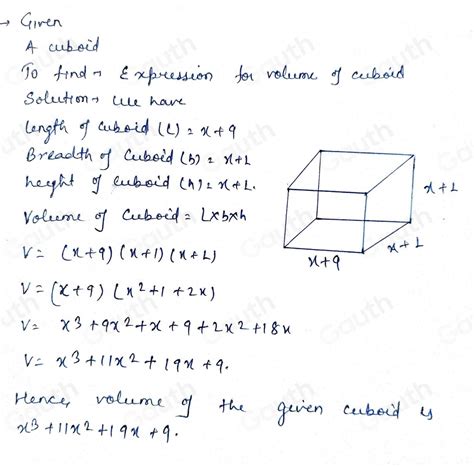 → Given
A cuboid
To find → Expression for volume of cuboid
Solution → We have
length of cuboid (L) = x+9
Breadth of cuboid (b) = x+1
height of cuboid (h) = x+1.
Volume of Cuboid = L×b×h
V = (x+9) (x+1) (x+1)
V = (x+9) (x²+1+2x)
V = x³+9x²+x+9+2x²+18x
V = x³+11x²+19x+9.
Hence, volume of the given cuboid is
x³+11x²+19x+9.
x+1
x+1
x+9
Gauth